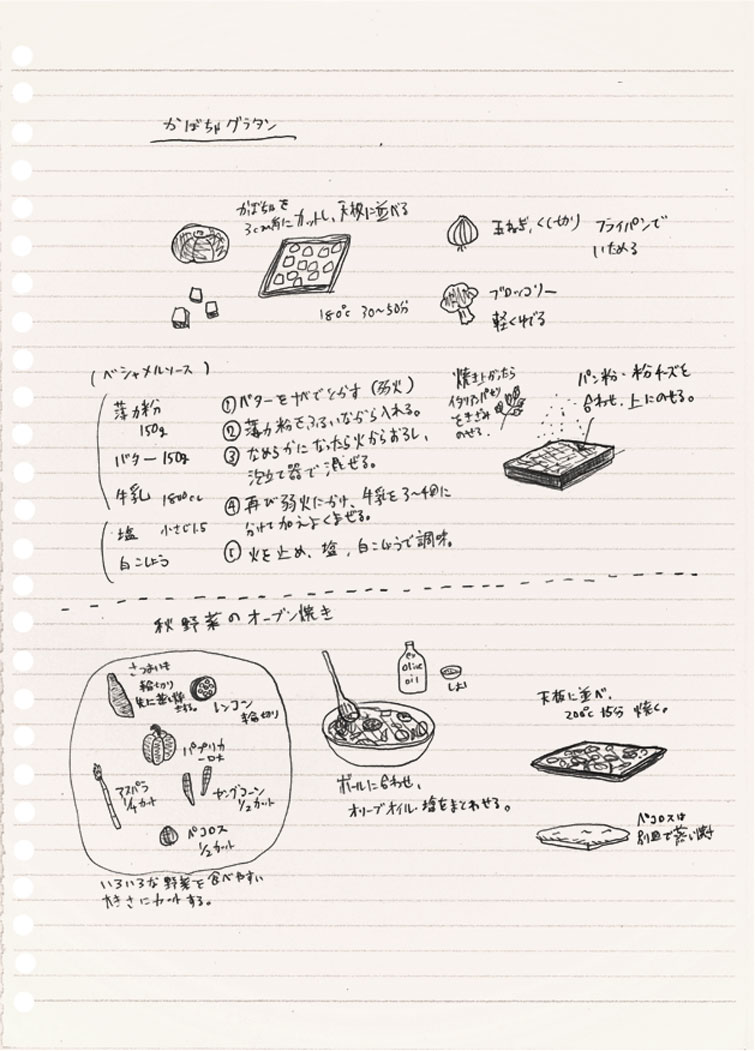 かぼちゃグラタン
かぼちゃを
3cm角にカットし、天板に並べる
180℃ 30〜50分
玉ねぎ、くし切り フライパンで
いためる
ブロッコリー
軽くゆでる
(ベシャメルソース)
薄力粉
150g
バター 150g
牛乳 1800cc
塩 小さじ1.5
白こしょう
①バターをナベでとかす (弱火)
②薄力粉をふるいながら入れる。
③なめらかになったら火からおろし、
泡立て器で混ぜる。
④再び弱火にかけ、牛乳を3〜4回に
分けて加えよくまぜる。
⑤火を止め、塩、白こしょうで調味。
焼き上がったら
イタリアンパセリ
をきざみ
のせる.
パン粉・粉チーズを
合わせ、上にのせる。
秋野菜のオーブン焼き
さつまいも
輪切り
先に蒸し焼き
する。
レンコン
輪切り
パプリカ
一口大
アスパラ
1/4カット
ヤングコーン
1/2カット
ペコロス
1/2カット
いろいろな野菜を食べやすい
大きさにカットする。
ex
olive
oil
しお
ボールに合わせ、
オリーブオイル・塩をまとわせる。
天板に並べ、
200℃ 15分 焼く。
ペコロスは
別皿で蒸し焼き